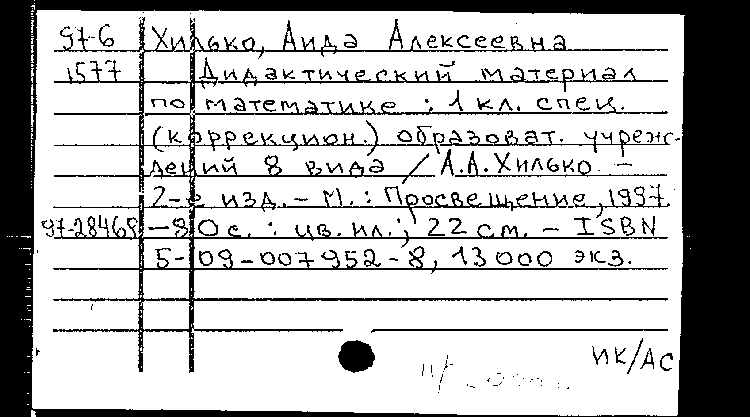 97-6 Хилько, Аида Алексеевна
1577 Дидактический материал
по математике : 1 кл. спец.
(коррекцион.) образоват. учреж-
дений 8 вида / А.А.Хилько. –
2-е изд. – М. : Просвещение, 1997.
97-28469 – 80 с. : цв. ил.; 22 см. – ISBN
5-09-007952-8, 13000 экз.
ИК/АС